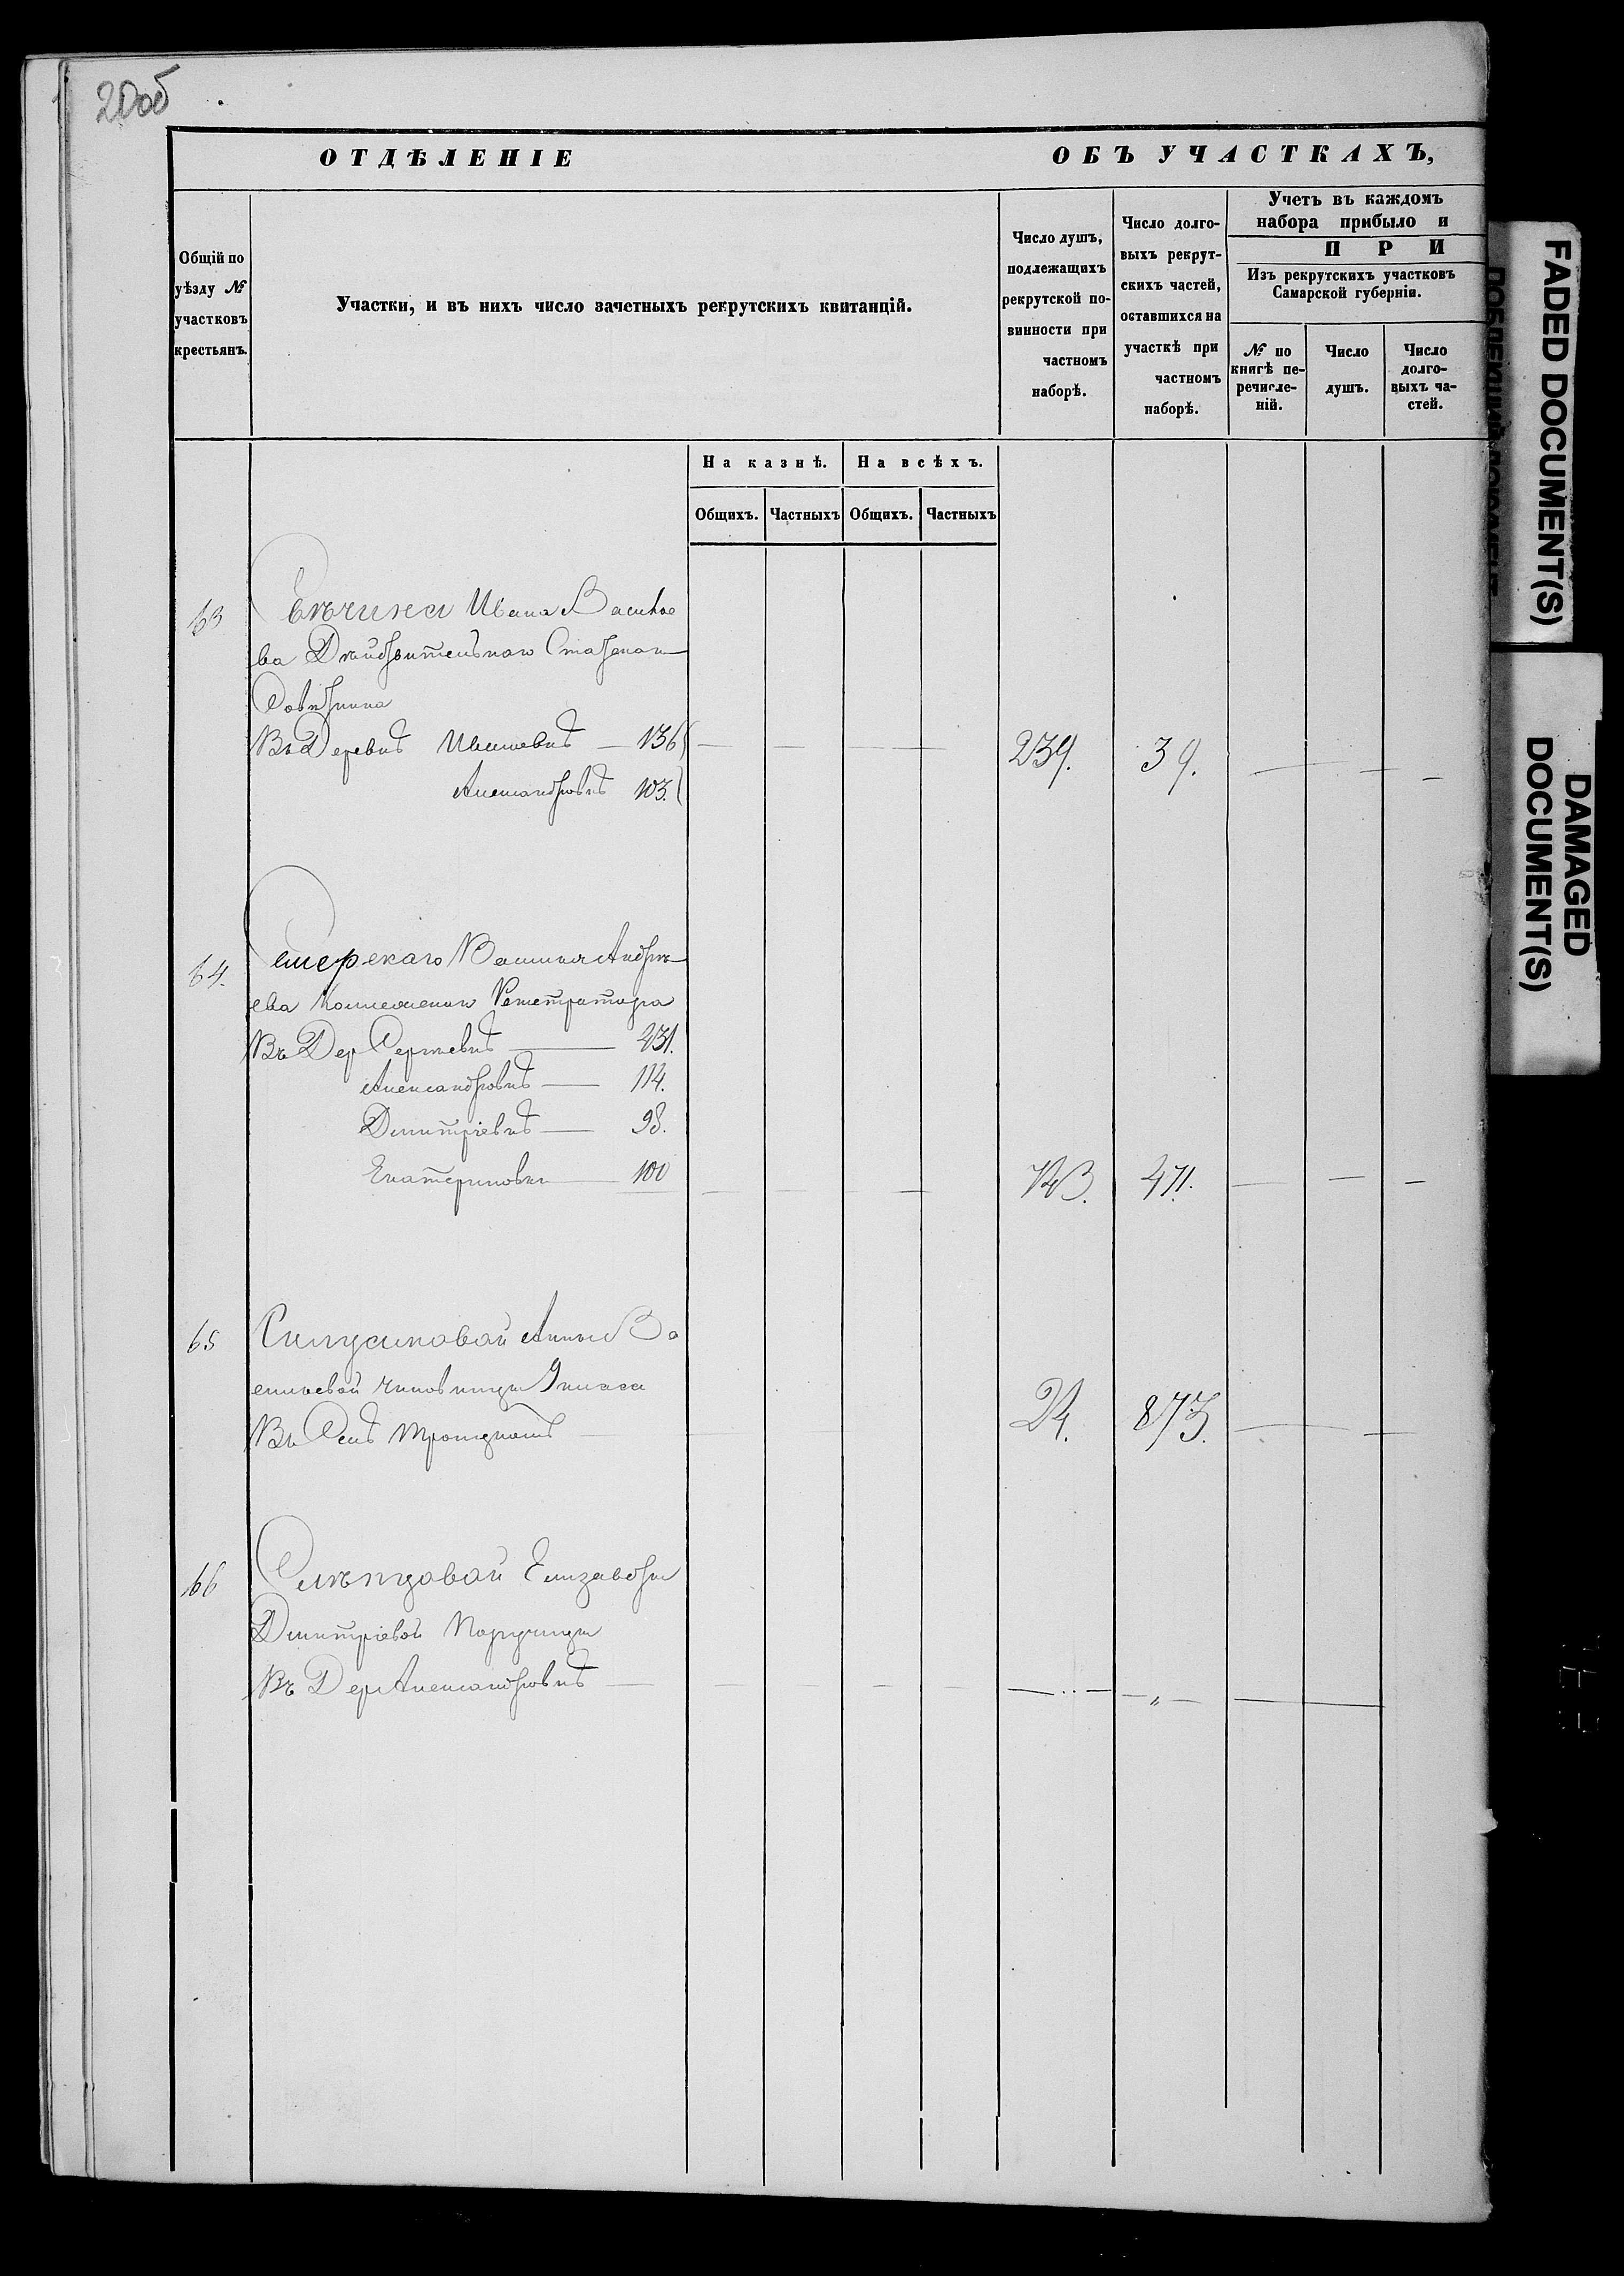 20об
ОТДѢЛЕНІЕ ОБЪ УЧАСТКАХЪ,
Общій по уѣзду № участковъ крестьянъ.
Участки, и въ нихъ число зачетныхъ рекрутскихъ квитанцій.
Число душъ, подлежащихъ рекрутской повинности при частномъ наборѣ.
Число долговыхъ рекрутскихъ частей, оставшихся на участкѣ при частномъ наборѣ.
Учетъ въ каждомъ
набора прибыло и
ПРИ
Изъ рекрутскихъ участковъ
Самарской губерніи.
№ по книгѣ перечисленій.
Число душъ.
Число долговыхъ частей.
На казнѣ. На всѣхъ.
Общихъ. Частныхъ Общихъ. Частныхъ
63 Ивана Василье
ва Дѣйствительнаго Статскаго
Совѣтника
Въ Деревнѣ Ивашевкѣ — 136
Александровкѣ 103. 239. 39.
64. Василья Андрѣ
ева Коллежскаго Регистратора
Въ Дер Сергіевкѣ — 231.
Александровкѣ — 114.
Димитріевкѣ — 98.
Екатериновкѣ — 100 471.
65 Анны Ва
сильевой чиновницы 9 класа
Въ Селѣ Троицкомъ 24. 873.
66 Слѣпцовой Елизаветы
Димитріевой Поручицы
Въ Дер Александровкѣ —
FADED DOCUMENT(S)
DAMAGED
DOCUMENT(S)